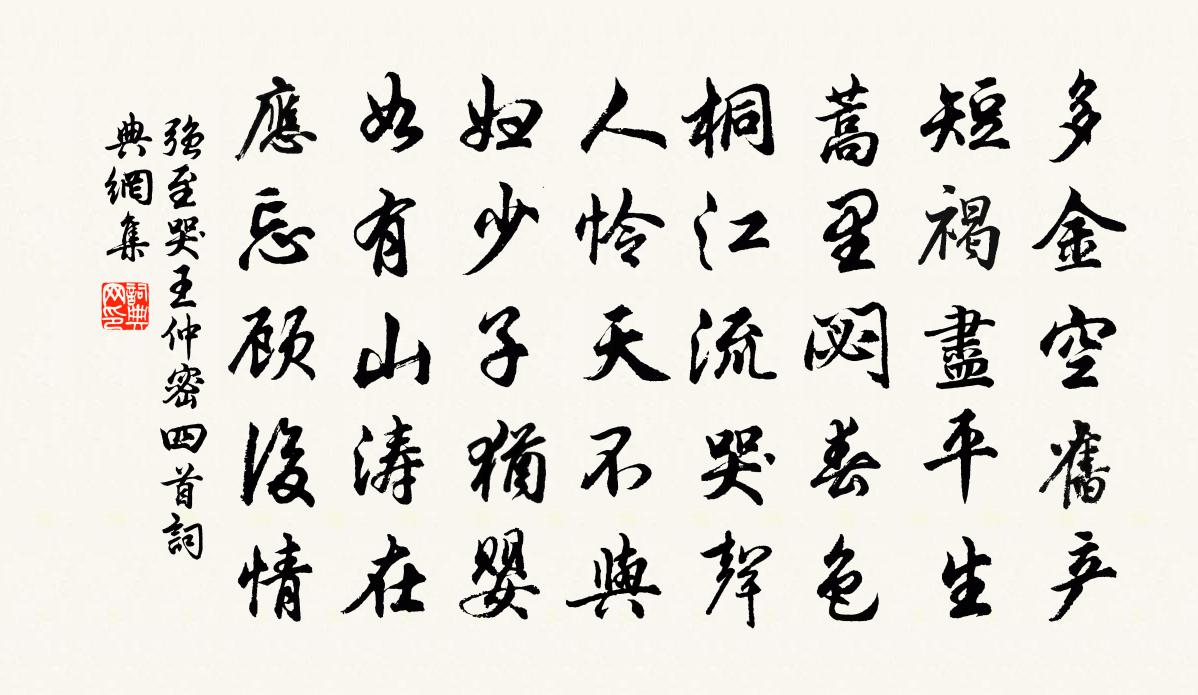 多金空舊产
短褐盡平生
蒿里閟春色
桐江流哭聲
人怜天不與
妇少子猶嬰
如有山涛在
應忘顾後情
强至哭王仲密四首詞
典網集
詞典
网印